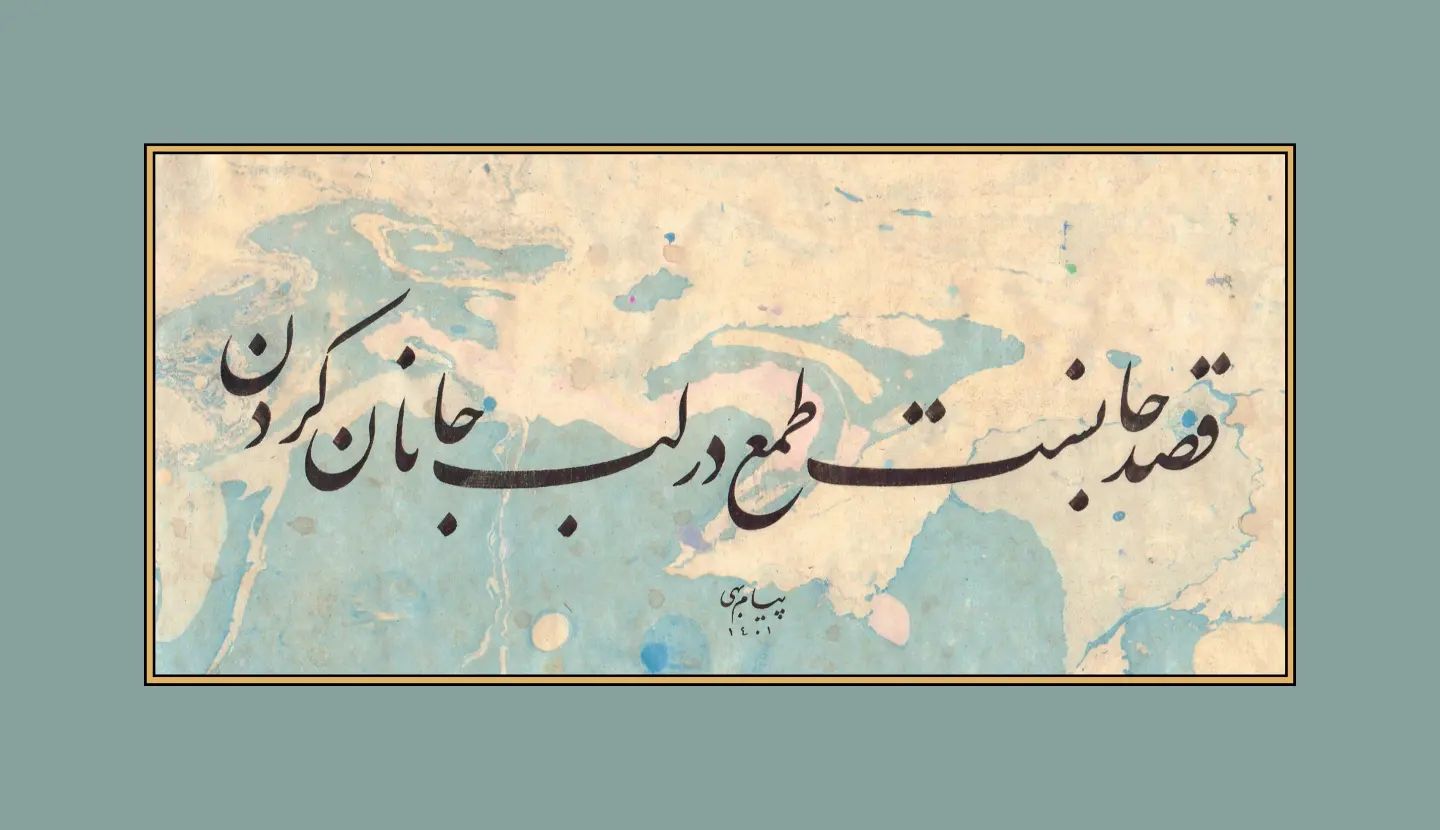 قصد جانست طمع در لب جانان کردن
پیام بهی
۱۴۰۱